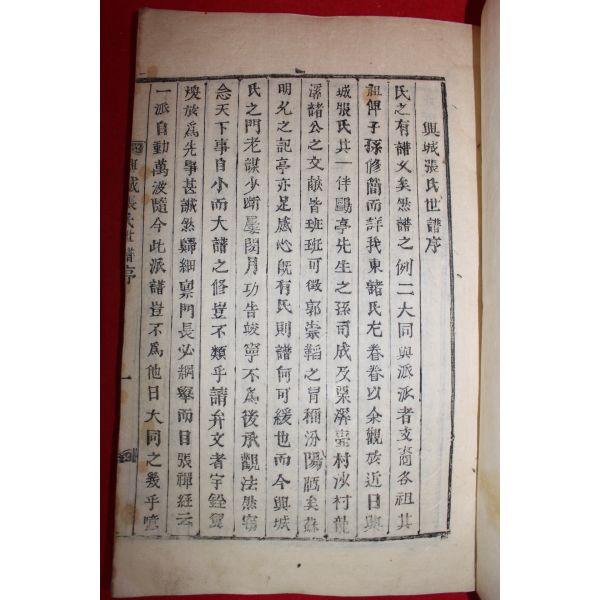 興城張氏世譜序
氏之有譜久矣然譜之例二大同與派派者支裔各祖其
祖俾子孫修簡而詳我東諸氏尤眷眷以余觀於近日興
城張氏其一伴鷗亭先生之孫司成及 村沙村龍
溪諸公之文獻皆班班可徵郭崇韜之冒 汾陽 矣蘇
明允之記亭亦足感心旣有氏則譜何可緩也而今興城
氏之門老謀少 閱月功告竣寧不爲後承觀法然竊
念天下事自小而大譜之修豈不類乎請弁文者宇銓
煥於爲先事甚誠然歸細稟門長必綱擧而目張禪經云
一派自動萬波隨今此派譜豈不爲他日大同之幾乎噫
興城張氏世譜序 一